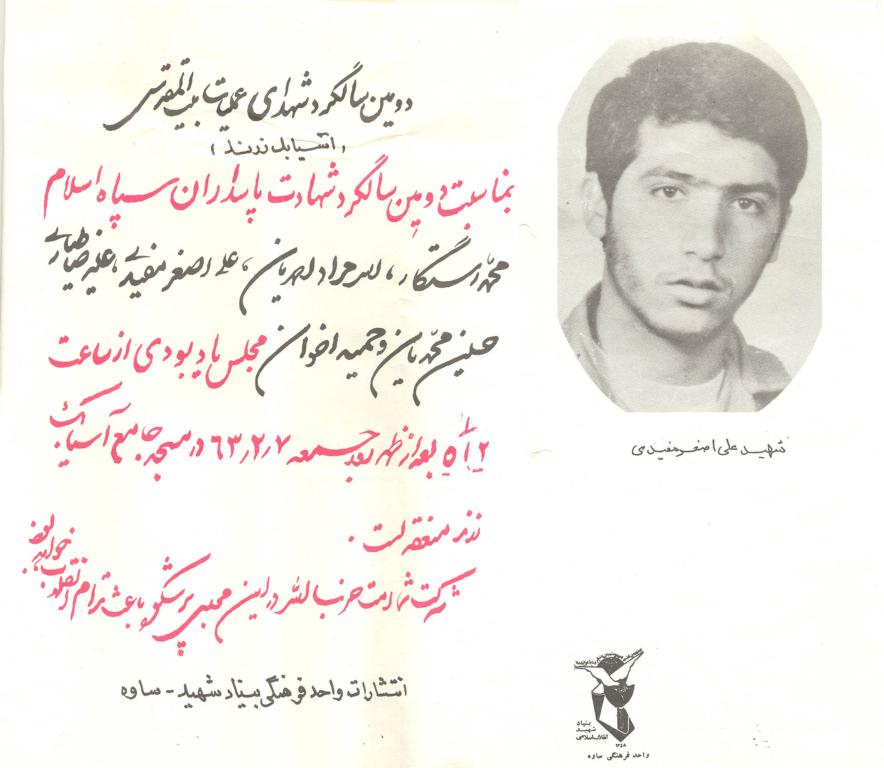 دومین سالگرد شهدای عملیات بیت المقدس
(آسیابک زرند)
بمناسبت دومین سالگرد شهادت پاسداران سپاه اسلام
محمد رستگار، الله مراد الهریان، علی اصغر مفیدی، علیرضا طاهری
حسین محمدیان و حمید اخوان مجلس یادبودی از ساعت
۲ الی ۵ بعد از ظهر روز جمعه ۶۳٫۲٫۷ در مسجد جامع آسیابک
زرند منعقد است.
شرکت شما امت حزب الله در این مجلس پرشکوه باعث تداوم انقلاب خواهد بود.
انتشارات واحد فرهنگی بنیاد شهید - ساوه
شهید علی اصغر مفیدی
بنیاد
شهید
انقلاب اسلامی
۱۳۵۸
واحد فرهنگی ساوه